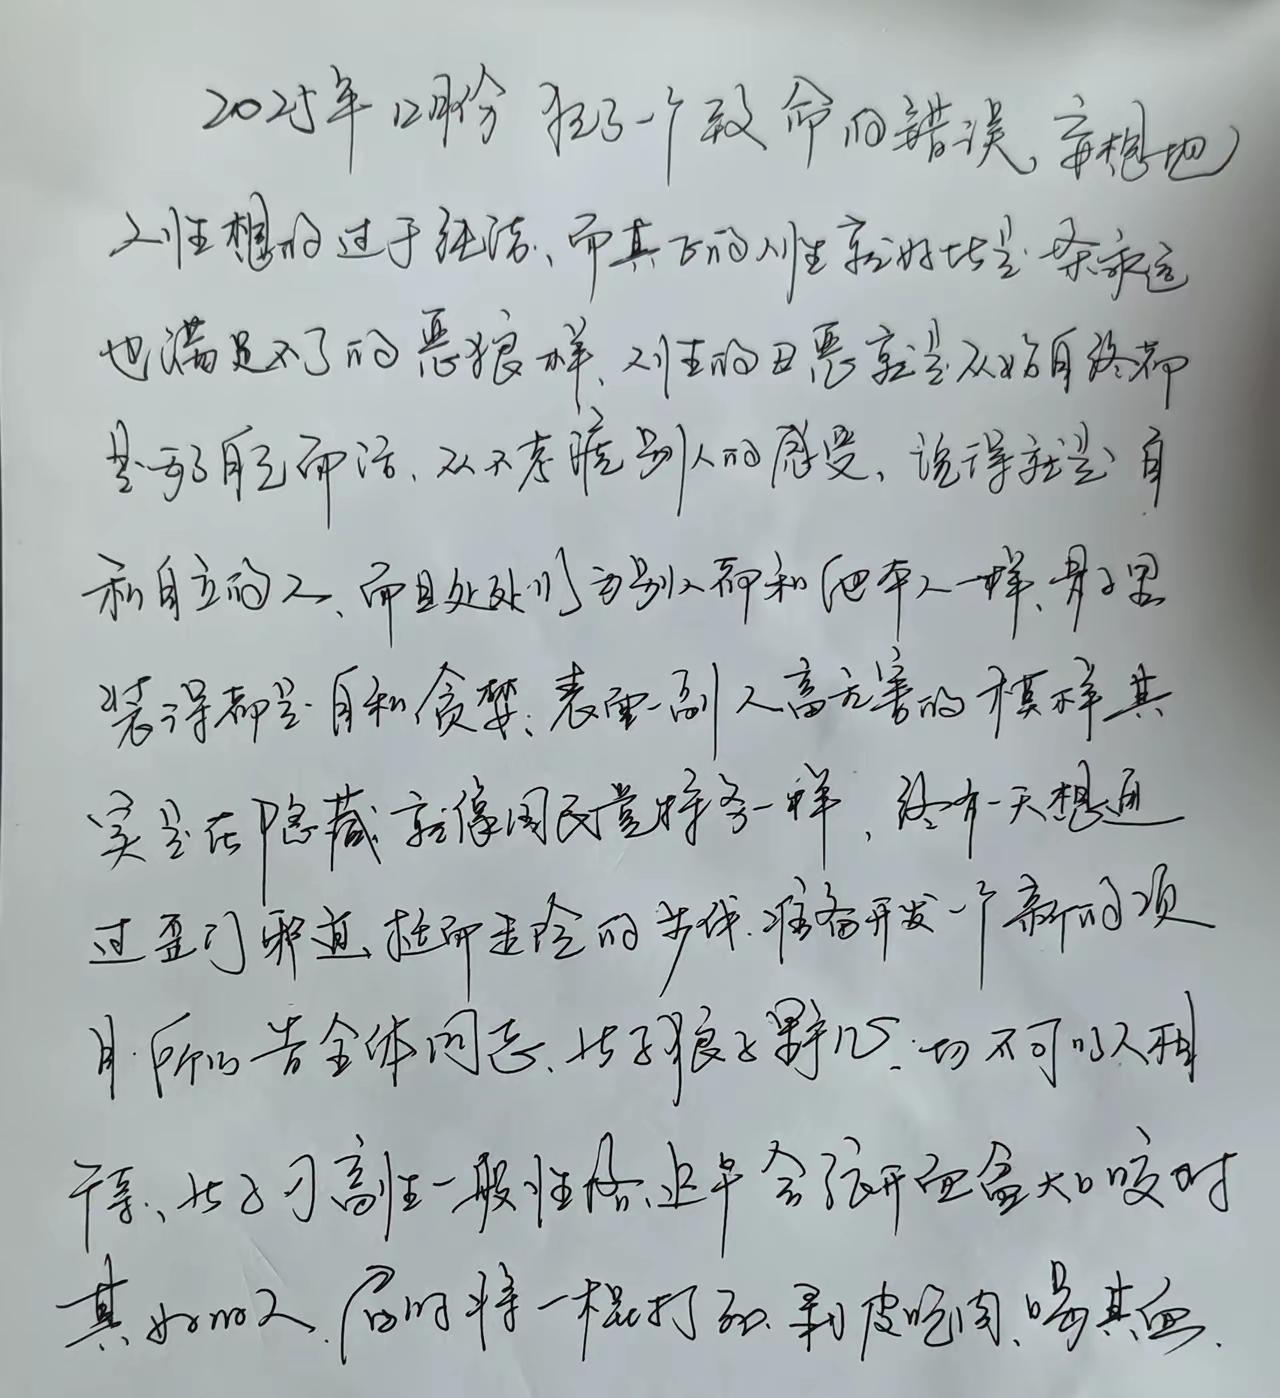 2025年12月份犯了一个致命的错误、妄想把
人性想的过于纯洁、而其下的人性就好比是一条永远
也满足不了的恶狼样、人性的丑恶就是从始自终都
是为了自己而活、从不考虑别人的感受、说得就是自
私自立的人、而且处处以为别人都和他本人一样、骨子里
装得都是自私贪婪、表面一副人畜无害的模样其
实是在隐藏、就像国民党特务一样，终有一天想通
过歪门邪道、挺而走险的步伐、准备开发一个新的项
目、所以告全体同志、此子狼子野心、切不可与人相
干亲、此子习畜性一般性格、迟早会张开血盆大口咬对
其好的人、届时将一棍打死、剥皮吃肉、喝其血、